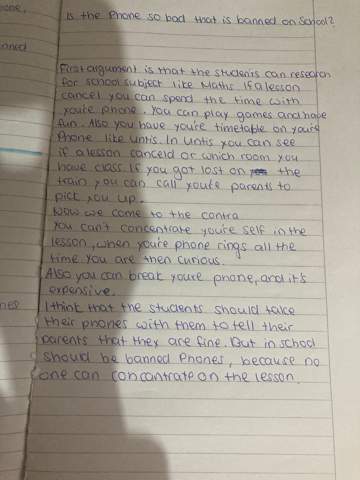 one,
Is the Phone so bad that is banned on School?
nned
First argument is that the students can research
for school subject like Maths. If a lesson
cancel you can spend the time with
you're phone. You can play games and have
fun. Also you have you're timetable on you're
Phone like untis. In Untis you can see
if a lesson canceld or which room you
have class. If you got lost on the
train you can call you're parents to
pick you up.
Now we come to the contra
You can't concentrate you're self in the
lesson, when you're phone rings all the
time you are then curious.
Also you can break youre phone, and it's
expensive.
nes
I think that the students should take
their phones with them to tell their
parents that they are fine. But in school
should be banned Phones, because no
one can concantrate on the lesson.